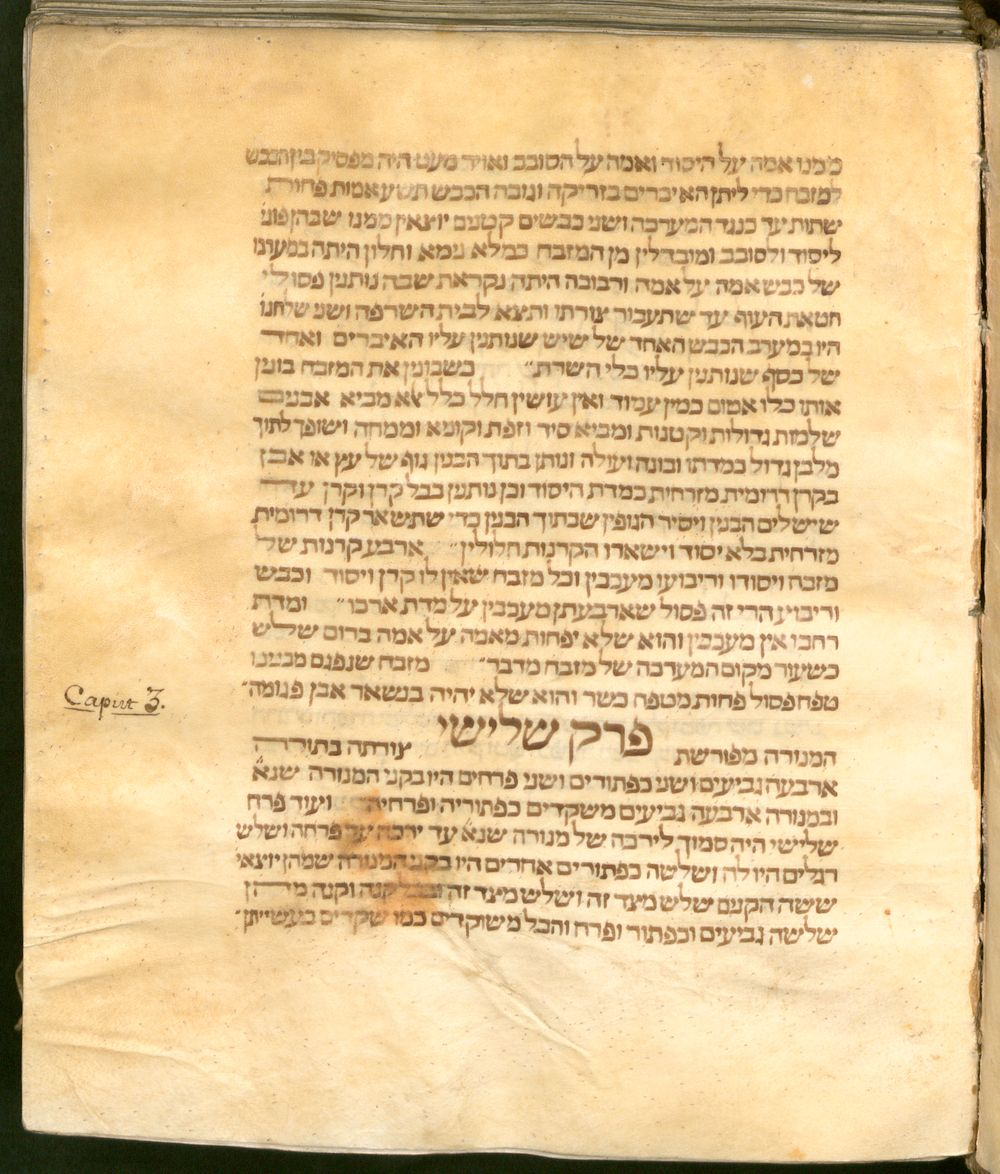 ממנו אמה על היסוד ואמה על הסובב ואויר מעט היה מפסיק בין הכבש
למזבח כדי ליתן האיברים בזריקה וגובה הכבש תשע אמות פחורת
שתות עד כנגד המערכה ושני כבשים קטנים יוצאין ממנו שבהן פוני
ליסוד ולסובב ומובדלין מן המזבח כמלא נימא וחלון היתה במערבו
של כבש אמה על אמה ורבובה היתה נקראת שבה נותנין פסולי
חטאת העוף עד שתעבור צורתו ותצא לבית השרפה ושני שלחנו
היו במערב הכבש האחד של שיש שנותנין עליו האיברים ואחד
של כסף שנותנין עליו כלי השרת׃ כשבונין את המזבח בונין
אותו כלו אטום כמין עמוד ואין עושין חלל כלל אלא מביא אבנים
שלמות גדולות וקטנות ומביא סיד וזפת וקוניא וממחה ושופך לתוך
מלבן גדול כמדתו ובונה ועולה ונותן בתוך הבנין גוף של עץ או אבן
בקרן דרומית מזרחית כמדת היסוד וכן נותנין בכל קרן וקרן עד
שישלים הבנין ויסיר הגופין שבתוך הבנין כדי שתשאר קרן דרומית
מזרחית בלא יסוד וישארו הקרנות חלולין׃ ארבע קרנות של
מזבח ויסודו וריבועו מעכבין וכל מזבח שאין לו קרן ויסוד וכבש
וריבוע הרי זה פסול שארבעתן מעכבין על מדת ארכו׃ ומדת
רחבו אין מעכבין והוא שלא יפחות מאמה על אמה ברום שלש
כשעור מקום המערכה של מזבח מדבר׃ מזבח שנפגם מבנינו
טפח פסול פחות מטפח כשר והוא שלא יהיה בנשאר אבן פגומה׃
Caput 3.
פרק שלישי
המנורה מפורשת צורתה בתורה
ארבעה גביעים ושני כפתורים ושני פרחים היו בקני המנורה שנא
ובמנורה ארבעה גביעים משקדים כפתוריה ופרחיה ועוד פרח
שלישי היה סמוך לירכה של מנורה שנא עד ירכה עד פרחה ושלש
רגלים היו לה ושלשה כפתורים אחרים היו בקני המנורה שמהן יוצאי
ששה הקנים שלש מצד זה ושלש מצד זה ובכל קנה וקנה מהן
שלשה גביעים וכפתור ופרח והכל משוקדים כמו שקדים בעשייתן׃